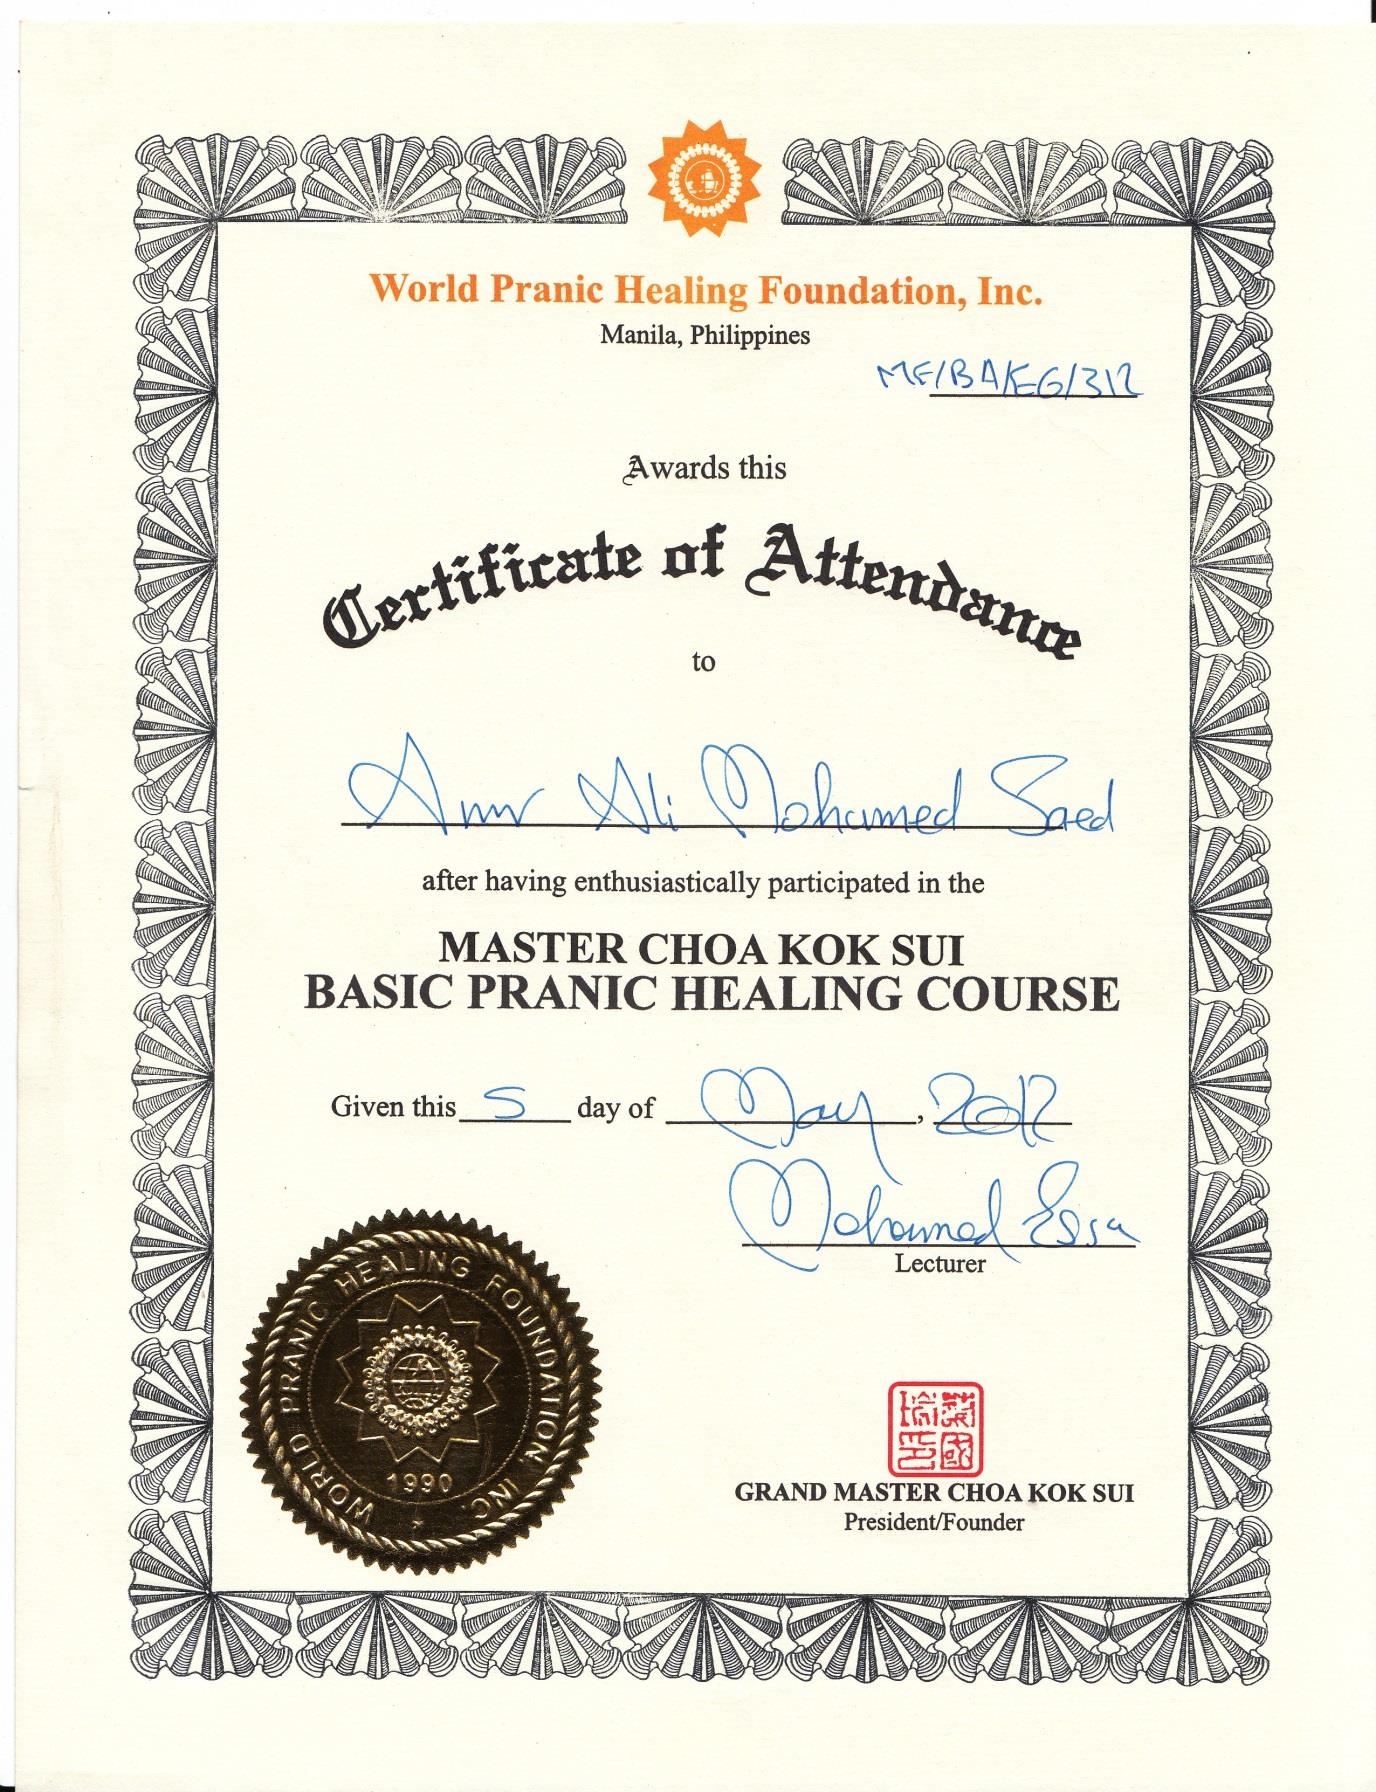 World Pranic Healing Foundation, Inc.
Manila, Philippines
ME/BA/EG/312
Awards this
Certificate of Attendance
to
Amr Ali Mohamed Saed
after having enthusiastically participated in the
MASTER CHOA KOK SUI
BASIC PRANIC HEALING COURSE
Given this 5 day of May, 2012
Mohamed Essa
Lecturer
WORLD PRANIC HEALING FOUNDATION INC.
1990
GRAND MASTER CHOA KOK SUI
President/Founder